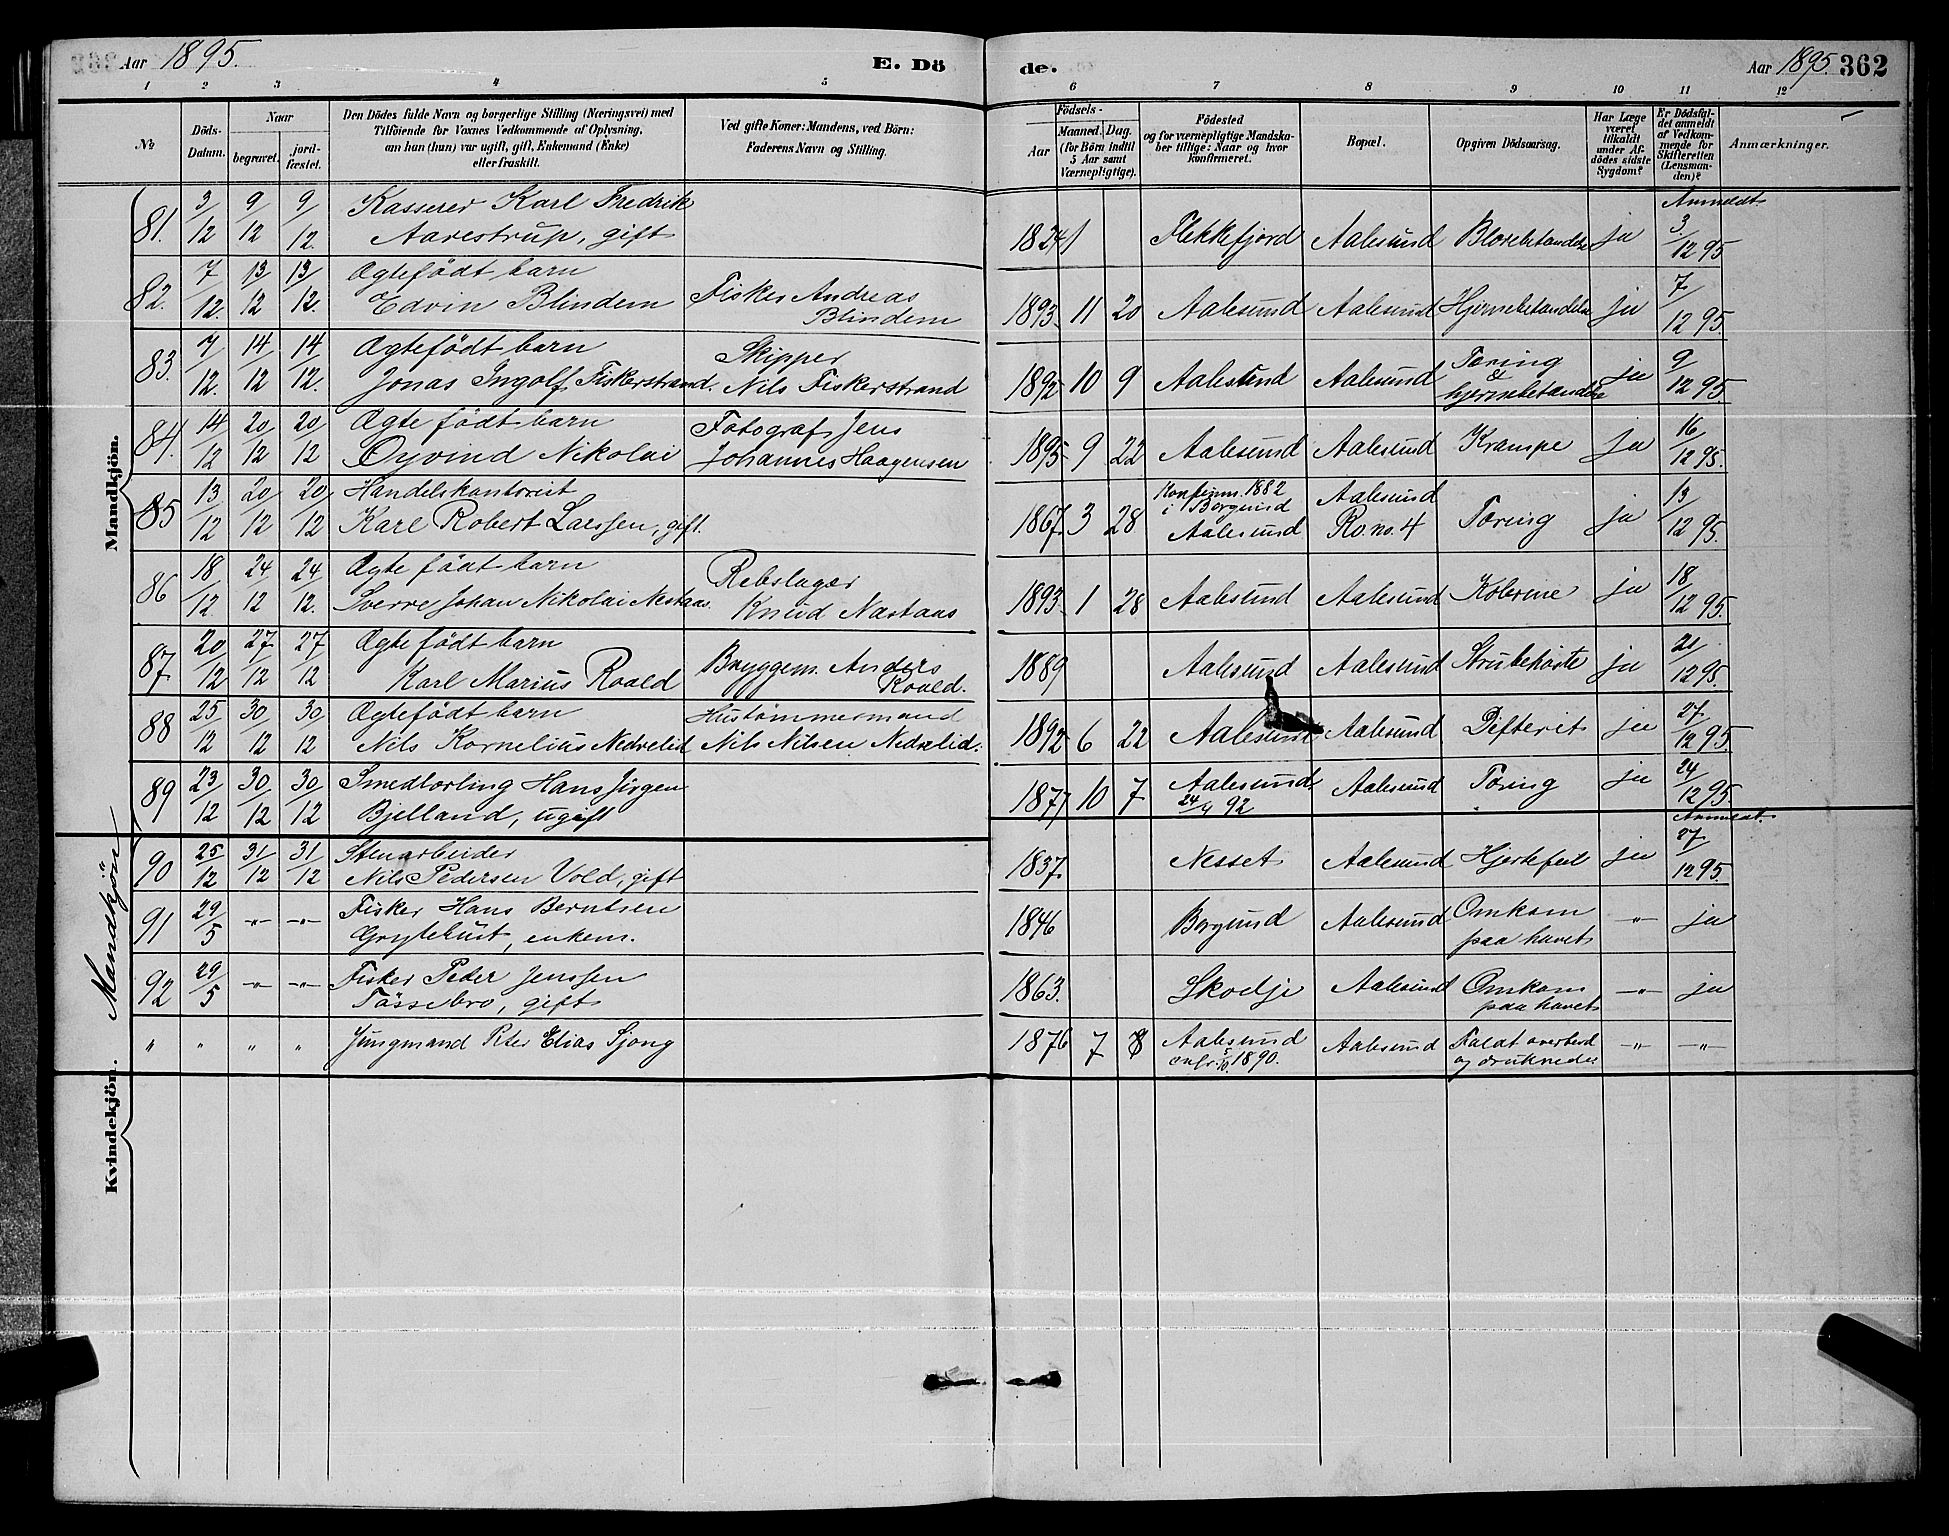 Aar 1895.
E. Döde.
Aar 1895. 362
1 2 3 4 5 6 7 8 9 10 11 12
№
Döds-Datum.
Naar
begravet.
jord-fæstet.
Den Dödes fulde Navn og borgerlige Stilling (Næringsvei) med
Tilföiende for Voxnes Vedkommende af Oplysning,
om han (hun) var ugift, gift, Enkemand (Enke)
eller fraskilt.
Ved gifte Koner: Mandens, ved Börn:
Faderens Navn og Stilling.
Födsels-
Aar
Maaned. Dag.
(for Börn indtil
5 Aar samt
Værnepligtige).
Födested
og for værnepligtige Mandska-
ber tillige: Naar og hvor
konfirmeret.
Bopæl.
Opgiven Dödsaarsag.
Har Læge
været
tilkaldt
under Af-
dödes sidste
Sygdom?
Er Dödsfal-
det anmeldt
af Vedkom-
mende for
Skifteretten
(Lensman-
den)?
Anmærkninger.
Mandkjön.
81. 3/12 9/12 9/12. Kasserer Karl Fredrik
Aarestrup, gift
1824 Flekkefjord Aalesund ja Anmeldt 3/12 95
82. 7/12. 13/12 13/12. Ægtefödt barn
Edvin Blindem
Fisker Andreas
Blindem
1893. 11 20 Aalesund Aalesund Hjernebetændelse ja 7/12 95.
83. 7/12. 14/12 14/12. Ægtefödt barn
Jonas Ingolf Fiskerstrand.
Skipper
Nils Fiskerstrand
1892 10 9 Aalesund Aalesund Tæring
&
hjernebetændelse ja 9/12 95.
84. 14/12 20/12 20/12 Ægte födt barn
Öyvind Nikolai
Fotograf Jens
Johannes Haagensen
1895 9 22 Aalesund Aalesund Krampe ja 16/12 95.
85 13/12 20/12 20/12 Handelskontorist
Karl Robert Larssen, gift.
1867. 3 28 Konfirm. 1882
i Borgund
Aalesund
Aalesund
Ro. no. 4
Tæring ja 13/12 95.
86 18/12 24/12 24/12. Ægte födt barn
Sverre Johan Nikolai Nestaas.
Rebslager
Knud Nastaas
1893. 1 28 Aalesund Aalesund Kolerine ja 18/12 95.
87 20/12 27/12 27/12 Ægte födt barn
Karl Marius Roald
Bryggem. Anders
Roald.
1889 Aalesund Aalesund Strubehoste ja 21/12 95.
88 25/12 30/12 30/12 Ægtefödt barn
Nils Kornelius Nedrelid
Hustömmermand
Nils Nilsen Nedrelid.
1892 6 22 Aalesund Aalesund Difterit ja 27/12 95.
89 23/12 30/12 30/12 Smedlærling Hans Jörgen
Bjelland, ugift
1877 10 7 Aalesund
24/4 92
Aalesund Tæring ja 24/12 95.
Mandkjön
90 25/12 31/12 31/12 Stenarbeider
Nils Pedersen Vold, gift
1837. Nesset Aalesund Hjertefeil ja Anmeldt. 27/12 95.
91 29/5 -"- -"- Fisker Hans Berntsen
Gryteküst, enkem.
1846 Borgund Aalesund Omkom
paa havet -"- ja
92 29/5 -"- -"- Fisker Peder Jenssen
Tössebro, gift
1863. Skodje Aalesund Omkom
paa havet -"- ja
" " " " Jungmand Peter Elias Sjong
1876 7 8 Aalesund
cnfr. 5/10. 1890.
Aalesund Faldt overbord
og druknede -"- -"-
Kvindekjön.